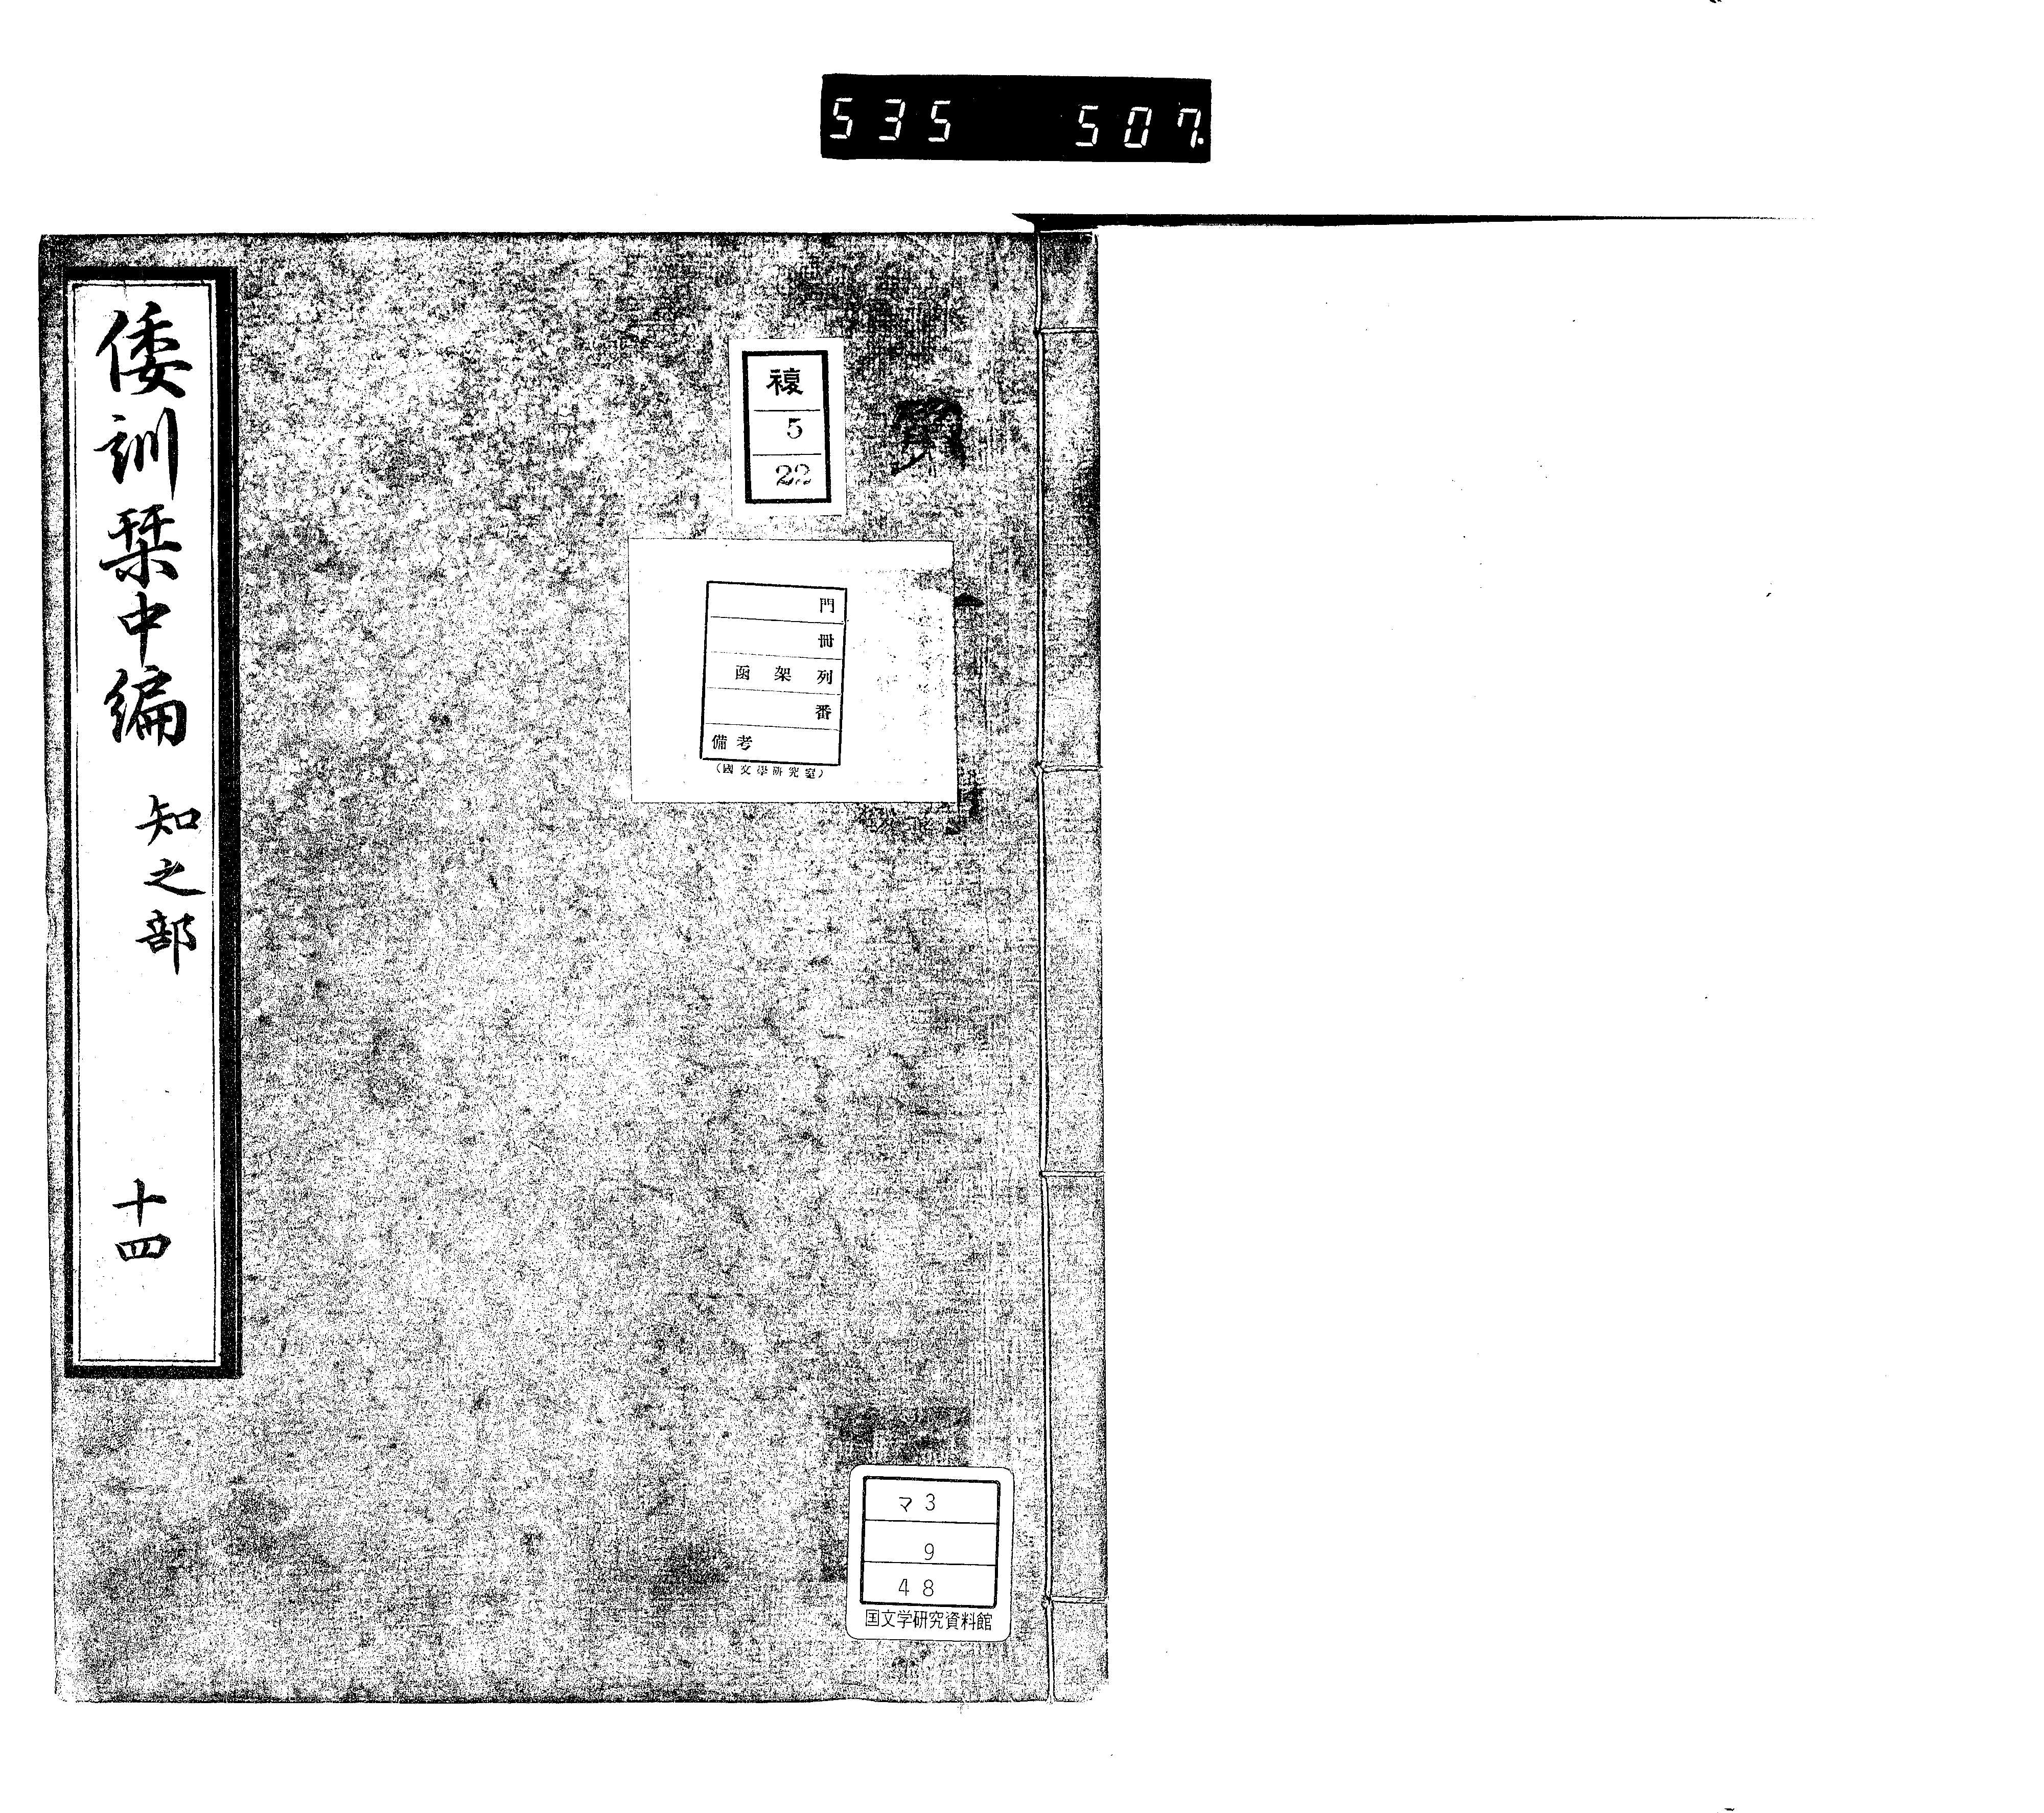 535 507.
倭訓栞中編 知之部 十四
複
5
22
門
冊
函架列
番
備考
(國文學研究室)
マ3
9
48
国文学研究資料館